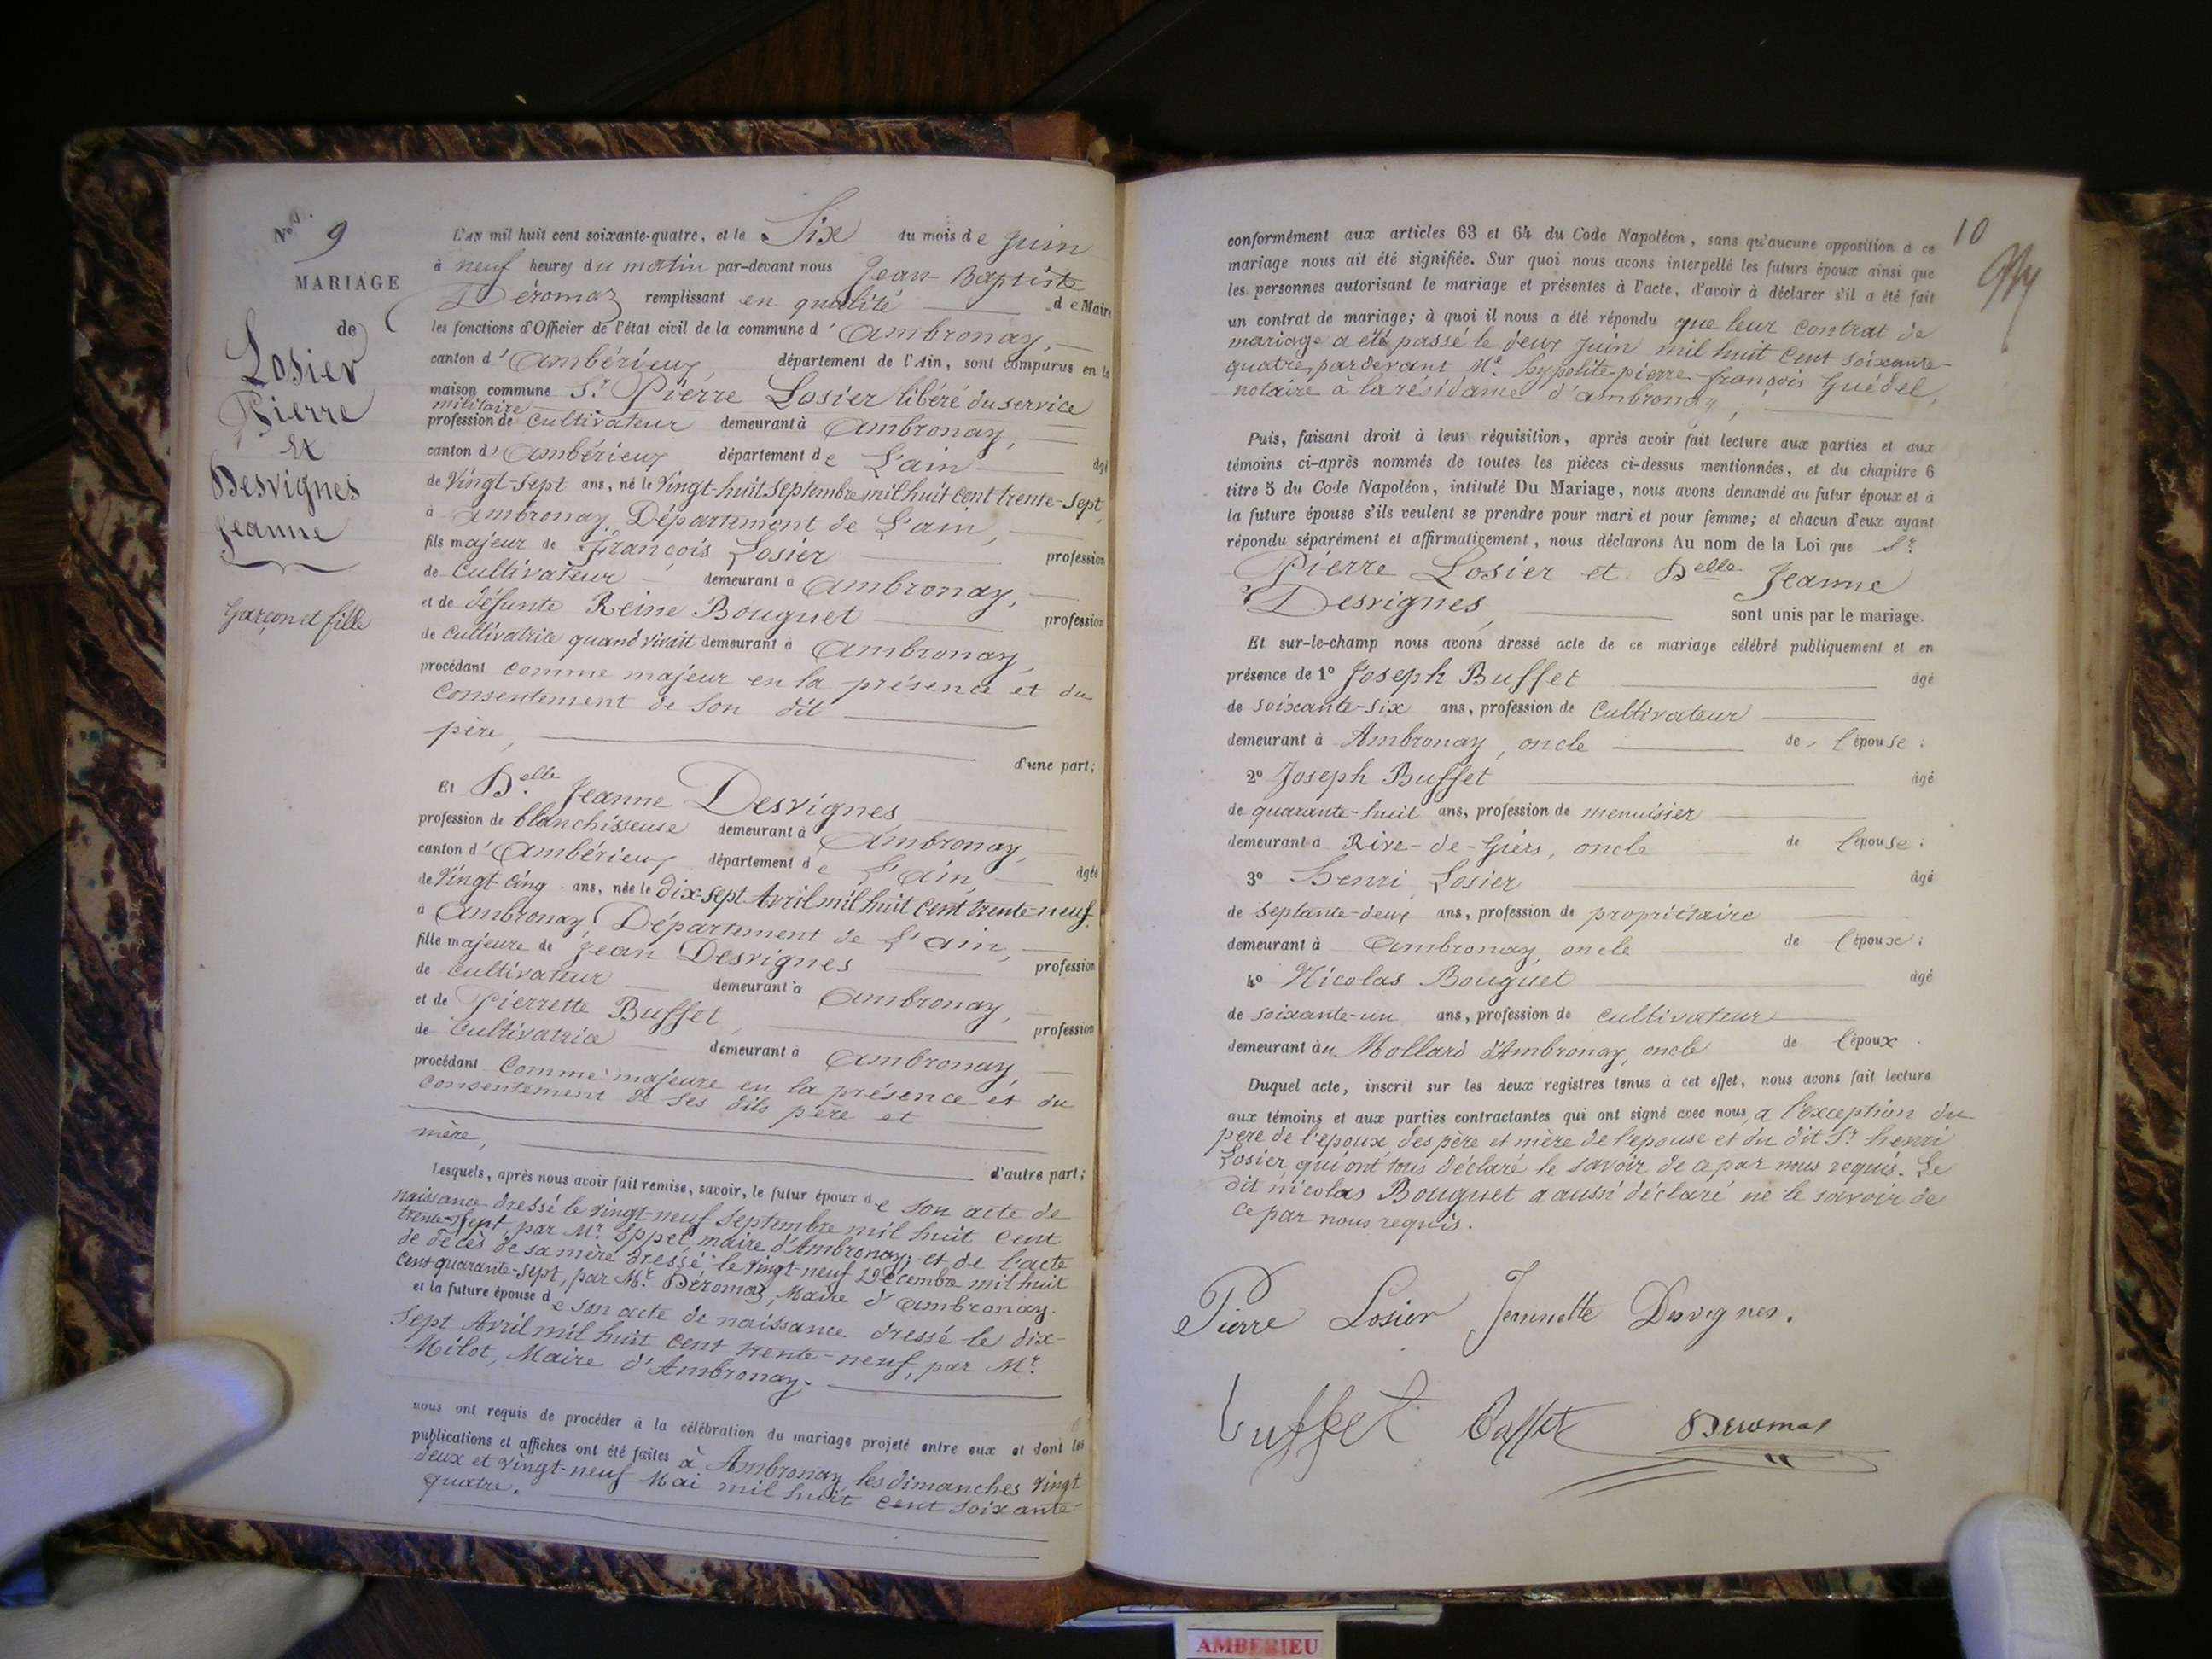 Nos. 9
MARIAGE
de
Losier
Pierre
Et
Desvignes
Jeanne
Garçon et fille
L'AN mil huit cent soixante-quatre, et le Six du mois de Juin
à neuf heures du matin par-devant nous Jean-Baptiste
Déromaz remplissant en qualité de Maire
les fonctions d'Officier de l'état civil de la commune d'Ambronay,
canton d'Ambérieux, département de l'Ain, sont comparus en la
maison commune Sr. Pierre Losier libéré du service
militaire
profession de Cultivateur demeurant à Ambronay,
canton d'Ambérieux département de L'ain âgé
de Vingt-Sept ans, né le Vingt-huit Septembre mil huit cent trente-Sept
à Ambronay, Département de L'ain,
fils majeur de François Losier profession
de Cultivateur demeurant à Ambronay,
et de défunte Reine Bouguet profession
de Cultivatrice quand vivait demeurant à Ambronay,
procédant comme majeur en la présence et du
Consentement de son dit
père,
d'une part;
Et Delle. Jeanne Desvignes
profession de blanchisseuse demeurant à Ambronay,
canton d'Ambérieux, département de L'Ain, âgée
de Vingt-Cinq ans, née le dix-sept Avril mil huit cent trente-neuf,
à Ambronay, Département de L'ain,
fille majeure de Jean Desvignes profession
de Cultivateur demeurant à Ambronay,
et de Pierrette Buffet, profession
de Cultivatrice demeurant à Ambronay,
procédant Comme majeure en la présence et du
Consentement de Ses dits père et
mère,
d'autre part;
Lesquels, après nous avoir fait remise, savoir, le futur époux de son acte de
naissance dressé le vingt-neuf Septembre mil huit cent
trente-Sept, par Mr. Eppet, maire d'Ambronay; et de l'acte
de décès de sa mère dressé le vingt neuf Décembre mil huit
cent quarante-Sept, par Mr. Déromaz, Maire d'Ambronay.
et la future épouse de son acte de naissance dressé le dix-
Sept Avril mil huit cent trente-neuf, par Mr.
Milot, Maire d'Ambronay.
nous ont requis de procéder à la célébration du mariage projeté entre eux et dont les
publications et affiches ont été faites à Ambronay, les dimanches vingt
deux et vingt-neuf Mai mil huit cent soixante-
quatre.
10
conformément aux articles 63 et 64 du Code Napoléon, sans qu'aucune opposition à ce
mariage nous ait été signifiée. Sur quoi nous avons interpellé les futurs époux ainsi que
les personnes autorisant le mariage et présentes à l'acte, d'avoir à déclarer s'il a été fait
un contrat de mariage; à quoi il nous a été répondu que leur contrat de
mariage a été passé le deux Juin mil huit cent soixante-
quatre, pardevant Me. hypolite-pierre-françois Guédel,
notaire à la résidame d'ambronay;
Puis, faisant droit à leur réquisition, après avoir fait lecture aux parties et aux
témoins ci-après nommés de toutes les pièces ci-dessus mentionnées, et du chapitre 6
titre 5 du Code Napoléon, intitulé Du Mariage, nous avons demandé au futur époux et à
la future épouse s'ils veulent se prendre pour mari et pour femme; et chacun d'eux ayant
répondu séparément et affirmativement, nous déclarons Au nom de la Loi que Sr.
Pierre Losier et Delle Jeanne
Desvignes, sont unis par le mariage.
Et sur-le-champ nous avons dressé acte de ce mariage célébré publiquement et en
présence de 1° Joseph Buffet âgé
de soixante-six ans, profession de Cultivateur
demeurant à Ambronay, oncle de l'épouse;
2° Joseph Buffet âgé
de quarante-huit ans, profession de menuisier
demeurant à Rive-de-Giérs, oncle de l'épouse;
3° Henri Losier âgé
de septante-deux ans, profession de propriétaire
demeurant à Ambronay, oncle de l'époux;
4° Nicolas Bouguet âgé
de soixante-un ans, profession de cultivateur
demeurant au Mollard d'Ambronay, oncle de l'époux.
Duquel acte, inscrit sur les deux registres tenus à cet effet, nous avons fait lecture
aux témoins et aux parties contractantes qui ont signé avec nous, à l'exception du
père de l'époux des père et mère de l'épouse et du dit Sr. henri
Losier, qui ont tous déclaré le savoir de ce par nous requis. Le
dit nicolas Bouguet a aussi déclaré ne le savoir de
ce par nous requis.
Pierre Losier Jeannette Desvignes.
buffet Buffet Déromaz
AMBERIEU